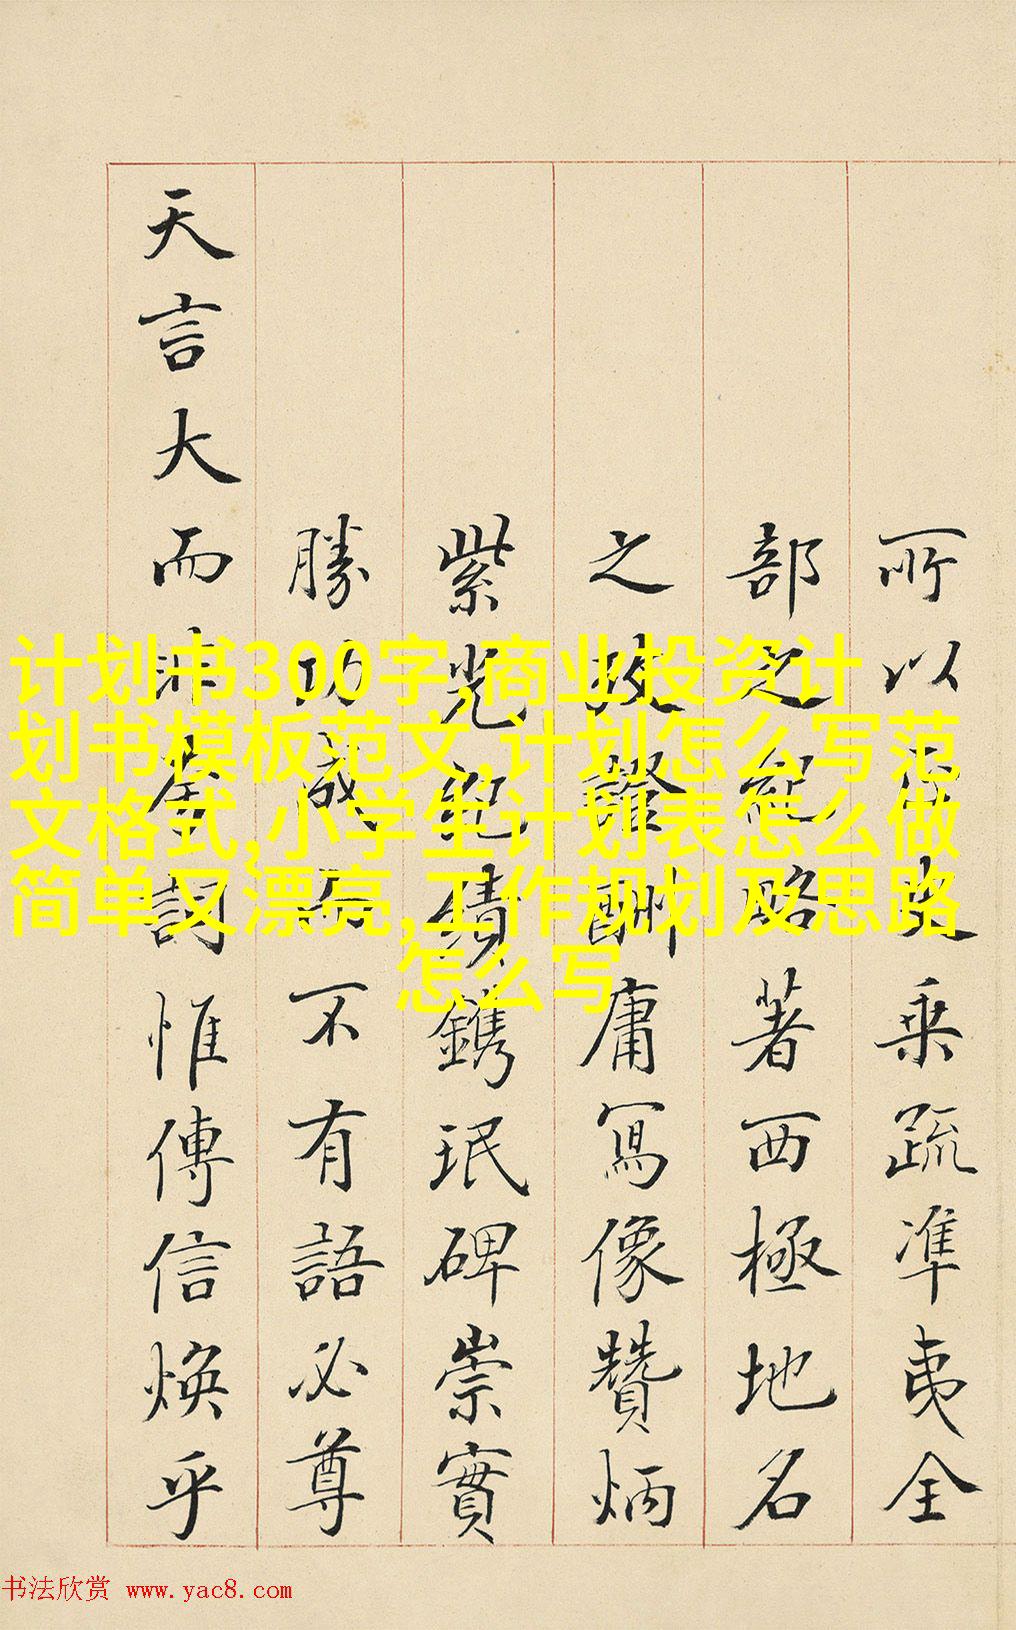 计划书300字,商业投资计
划书模板范文,计划怎么写范
文格式,小学生计划表怎么做
简单又漂亮,工作规划及思路
怎么写
所以史乘疏準夷全
部之紀略著西極地名
之攷證酬庸寫像贊炳
紫光紀績鐫珉碑崇實
勝功成不有語必尊
天言大而詞惟傳信煥乎
书法欣赏 www.yac8.com